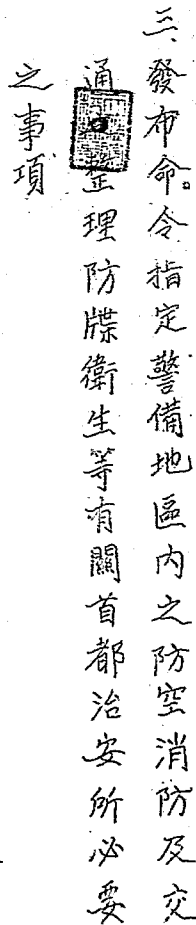 三、發布命令指定警備地區內之防空消防及交
通整理防牒衛生等有關首都治安所必要
之事項